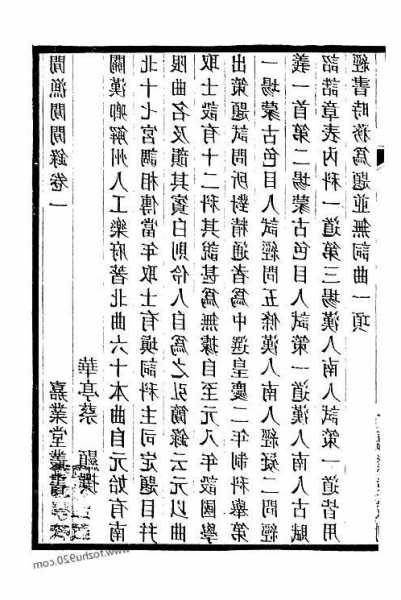 閒漁閒閒錄卷一 嘉業堂叢書
華亭蔡 顯撰
關漢卿解州人工樂府著北曲六十本曲自元始有南
北十七宮調相傳當年取士有填詞科主司定題目并
限曲名及韻其賓白則伶人自為之弘簡錄云元以曲
取士設有十二科其說甚為無據自至元八年設國學
出策題試問所對精通者為中選皇慶二年制科舉第
一場蒙古色目人試經問五條漢人南人經疑二問經
義一首第二場蒙古色目人試策一道漢人南人古賦
詔誥章表內科一道第三場漢人南人試策一道皆用
經書時務為題並無詞曲一項